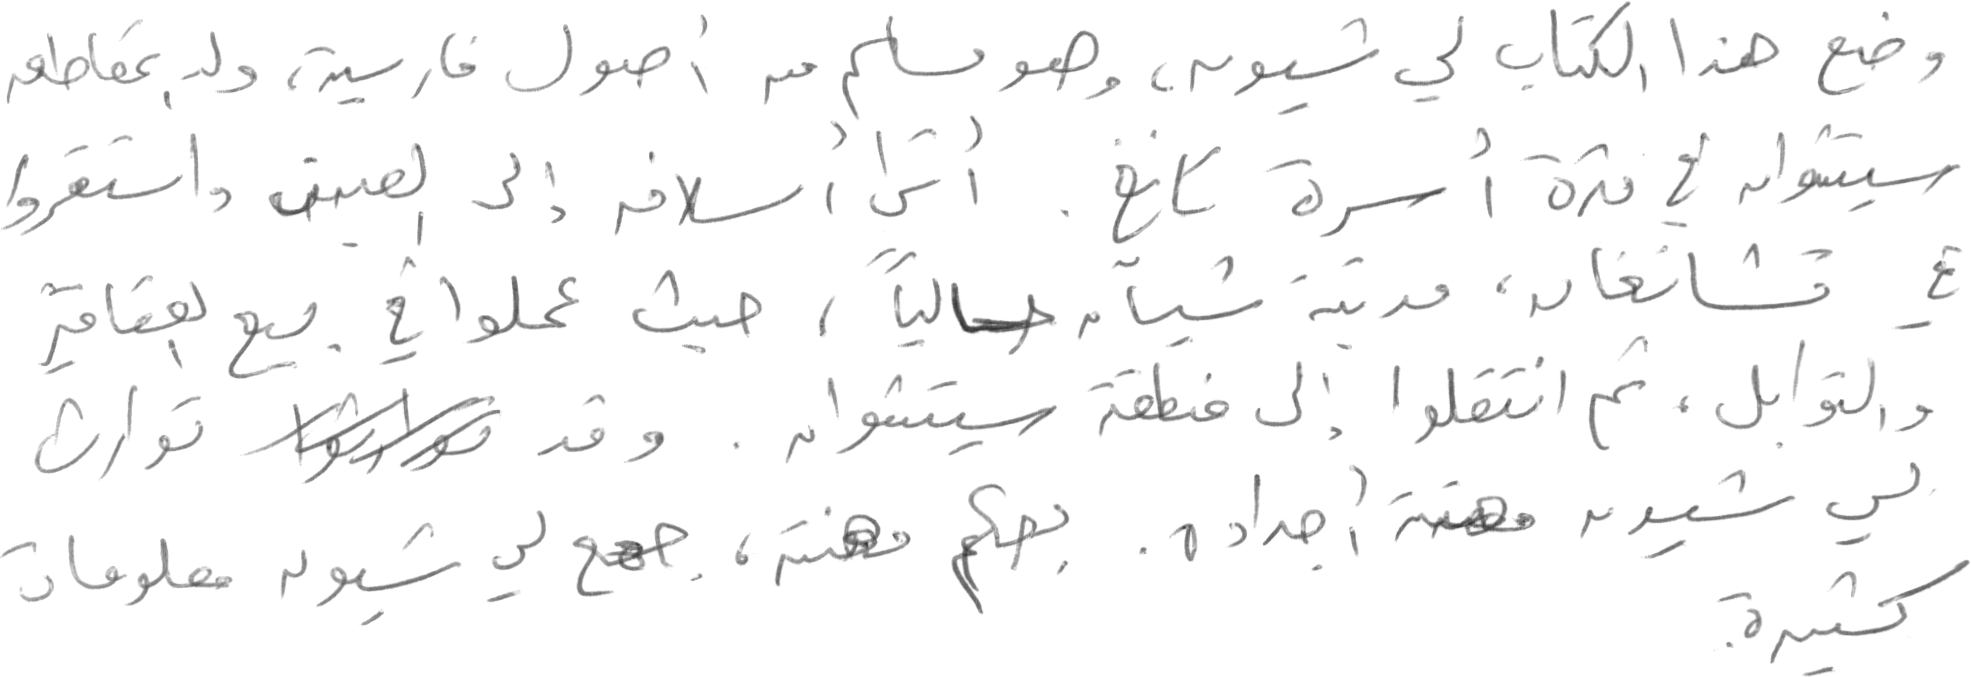 وضع هذا الكتاب لي شيون، وهو مسلم من أصول فارسية، ولد بمقاطعه
سيتشوان في فترة أسرة تانغ. أتى أسلافه إلى الصين واستقروا
في تشانغان، مدينة شيآن حالياً، حيث عملوا في بيع العقاقير
والتوابل، ثم انتقلوا إلى منطقة سيتشوان. وقد توارث
لي شيون مهنة أجداده. بحكم مهنته، جمع لي شيون معلومات
كثيرة.